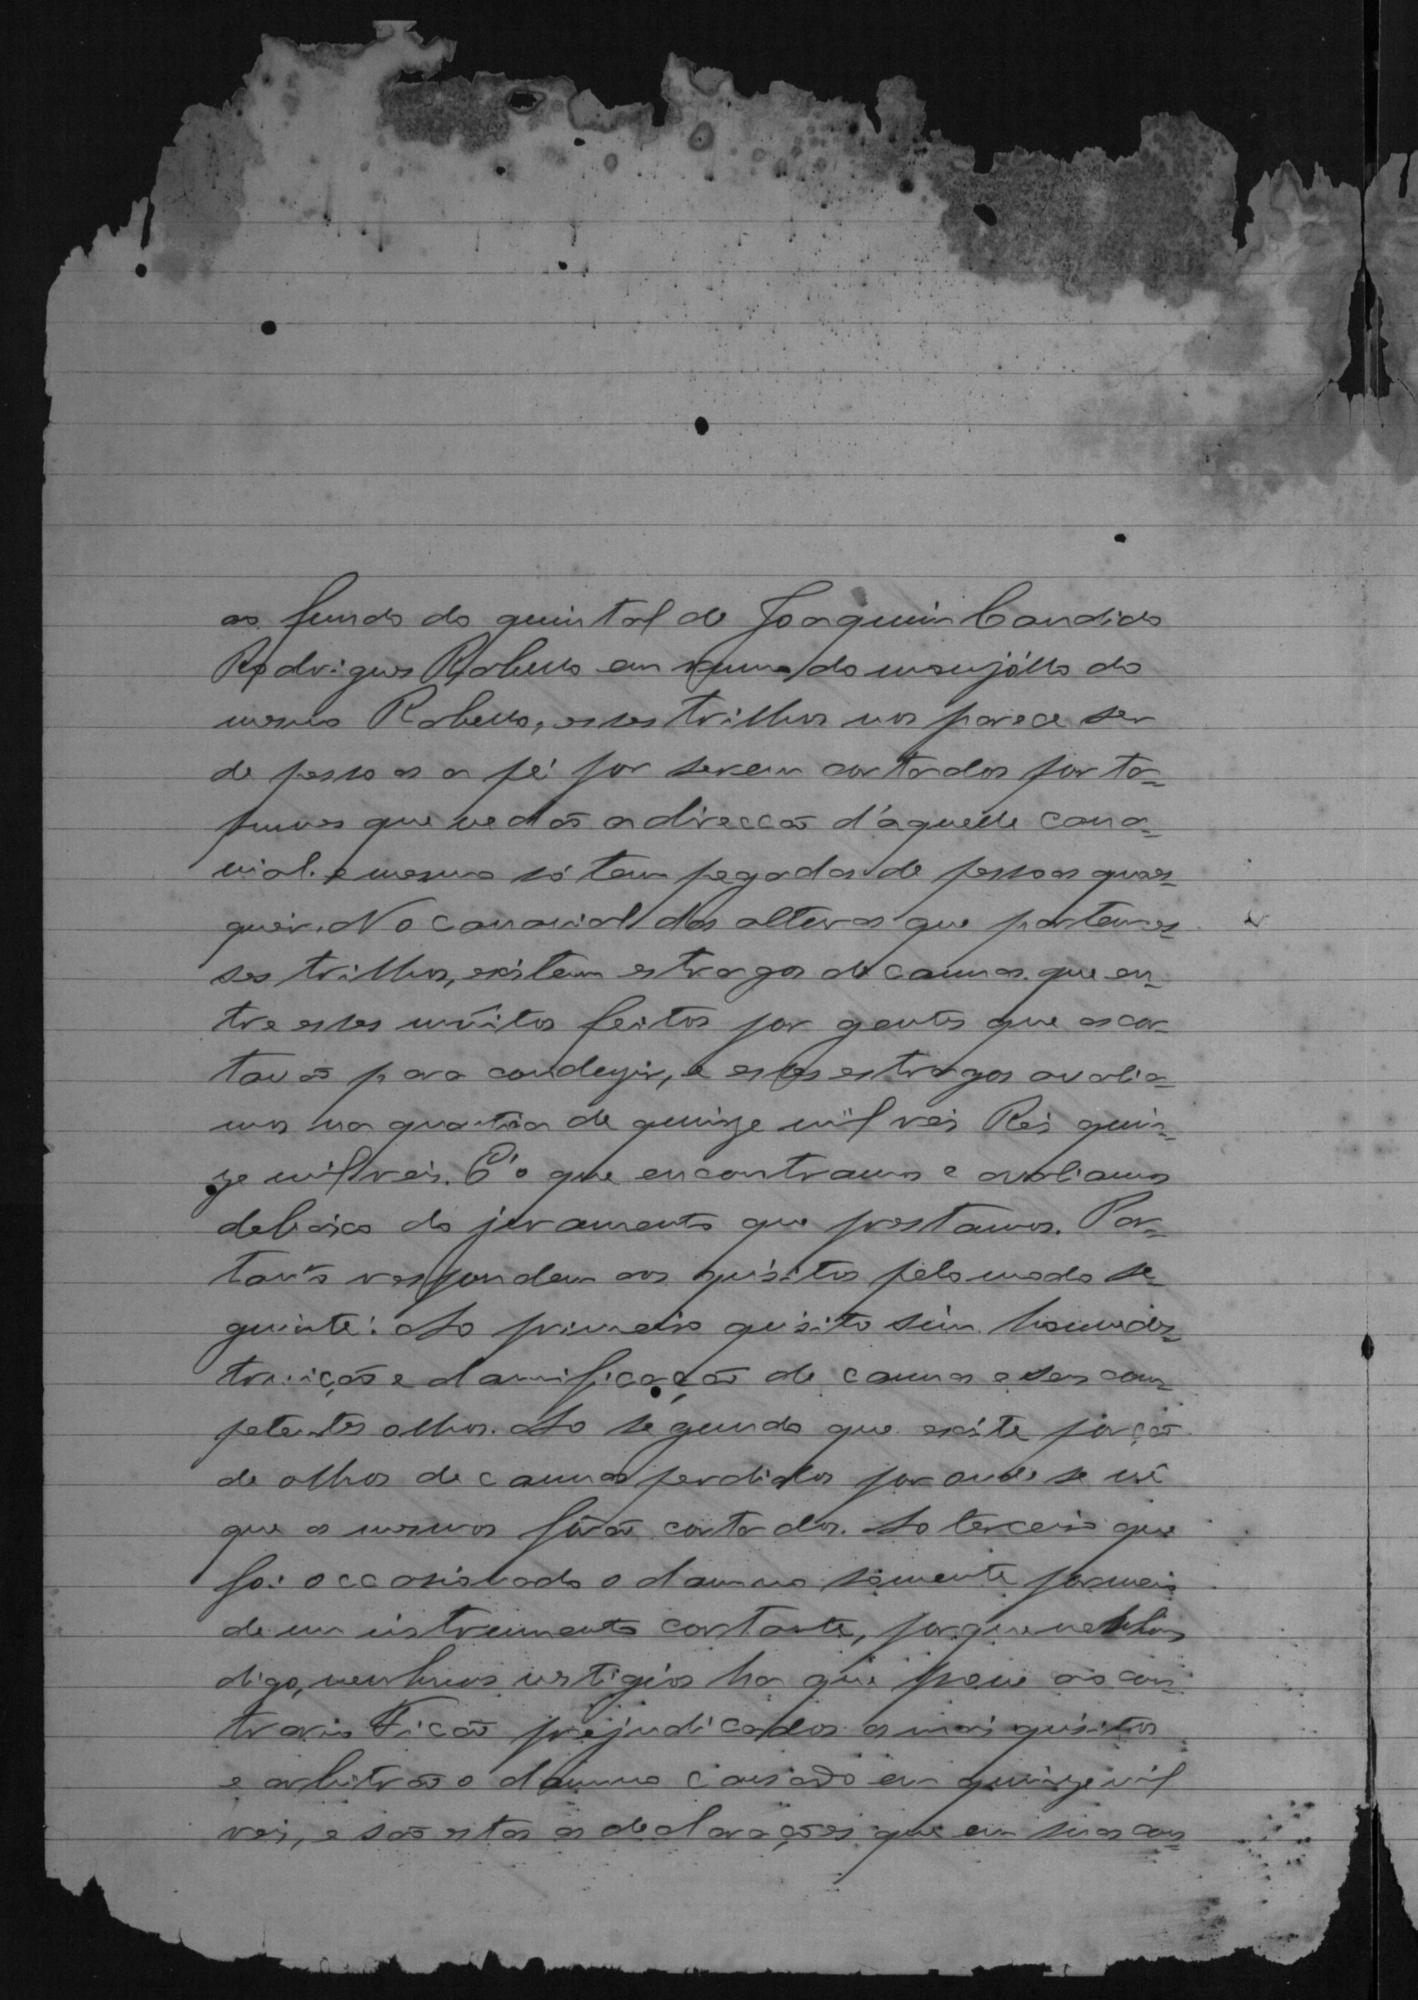 ao fundo do quintal de Joaquim Candido
Rodrigues Rabello em rumo do monjóllo do
mesmo Rabello, esses trilhos nos parece ser
de pessoas a pé por serem cortados por ta-
pumes que vedão a direcção d'aquelle cana-
vial e mesmo só tem pegadas de pessoas quaes-
quér. No canavial das alturas que partem es-
ses trilhos, existem estragos de cannas que en-
tre esses muitos feitos por gentes que as cor-
tavão para conduzir, e esses estragos avalia-
mos na quantia de quinze mil reis Reis quin-
ze mil reis. É o que encontramos e avaliamos
debaixo do juramento que prestamos. Por-
tanto respondem aos quisitos pelo modo se-
guinte: Ao primeiro quisito sim houve des-
truição e damnificação de cannas e seus com-
petentes olhos. Ao segundo que existe porção
de olhos de cannas perdidos por onde se vê
que os mesmos forão cortados. Ao terceiro que
foi occasionado o damno sómente por meio
de um instrumento cortante, porque nenhus
digo, nenhuns vestigios ha que prove ao con-
trario Ficão prejudicados os mais quisitos
e arbitrão o damno causado em quinze mil
reis, e são estas as declarações que em suas con-